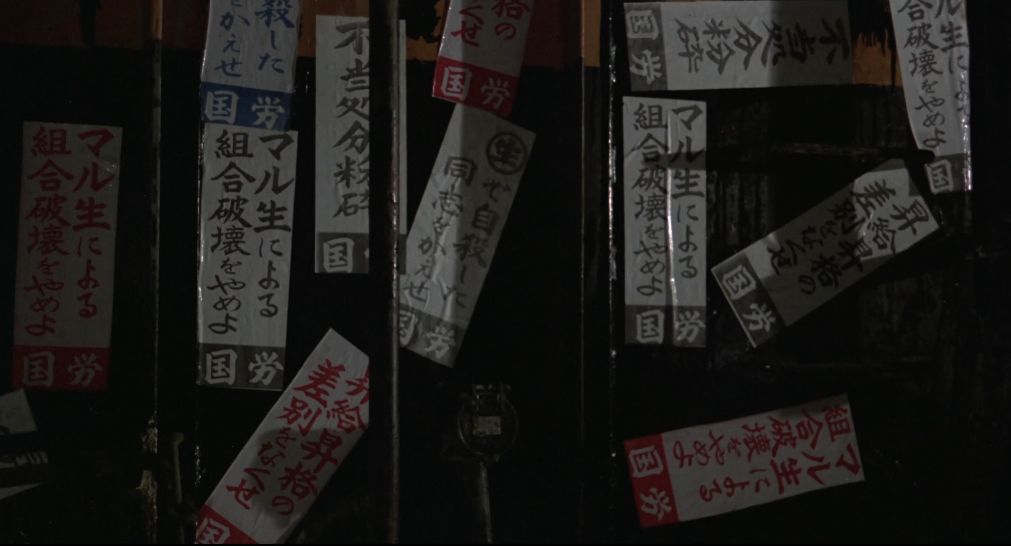 マル生による
組合破壊をやめよ
国労
殺した
をかえせ
国労
マル生による
組合破壊をやめよ
国労
不当処分粉砕
国
昇給昇格の
差別をなくせ
国
格の
くせ
国労
㊤で自殺した
同志をかえせ
国労
不当処分粉砕
国労
マル生による
組合破壊をやめよ
国労
昇給昇格の
差別をなくせ
国労
マル生によ
合破壊をやめよ
国
マル生による
組合破壊をやめよ
国労